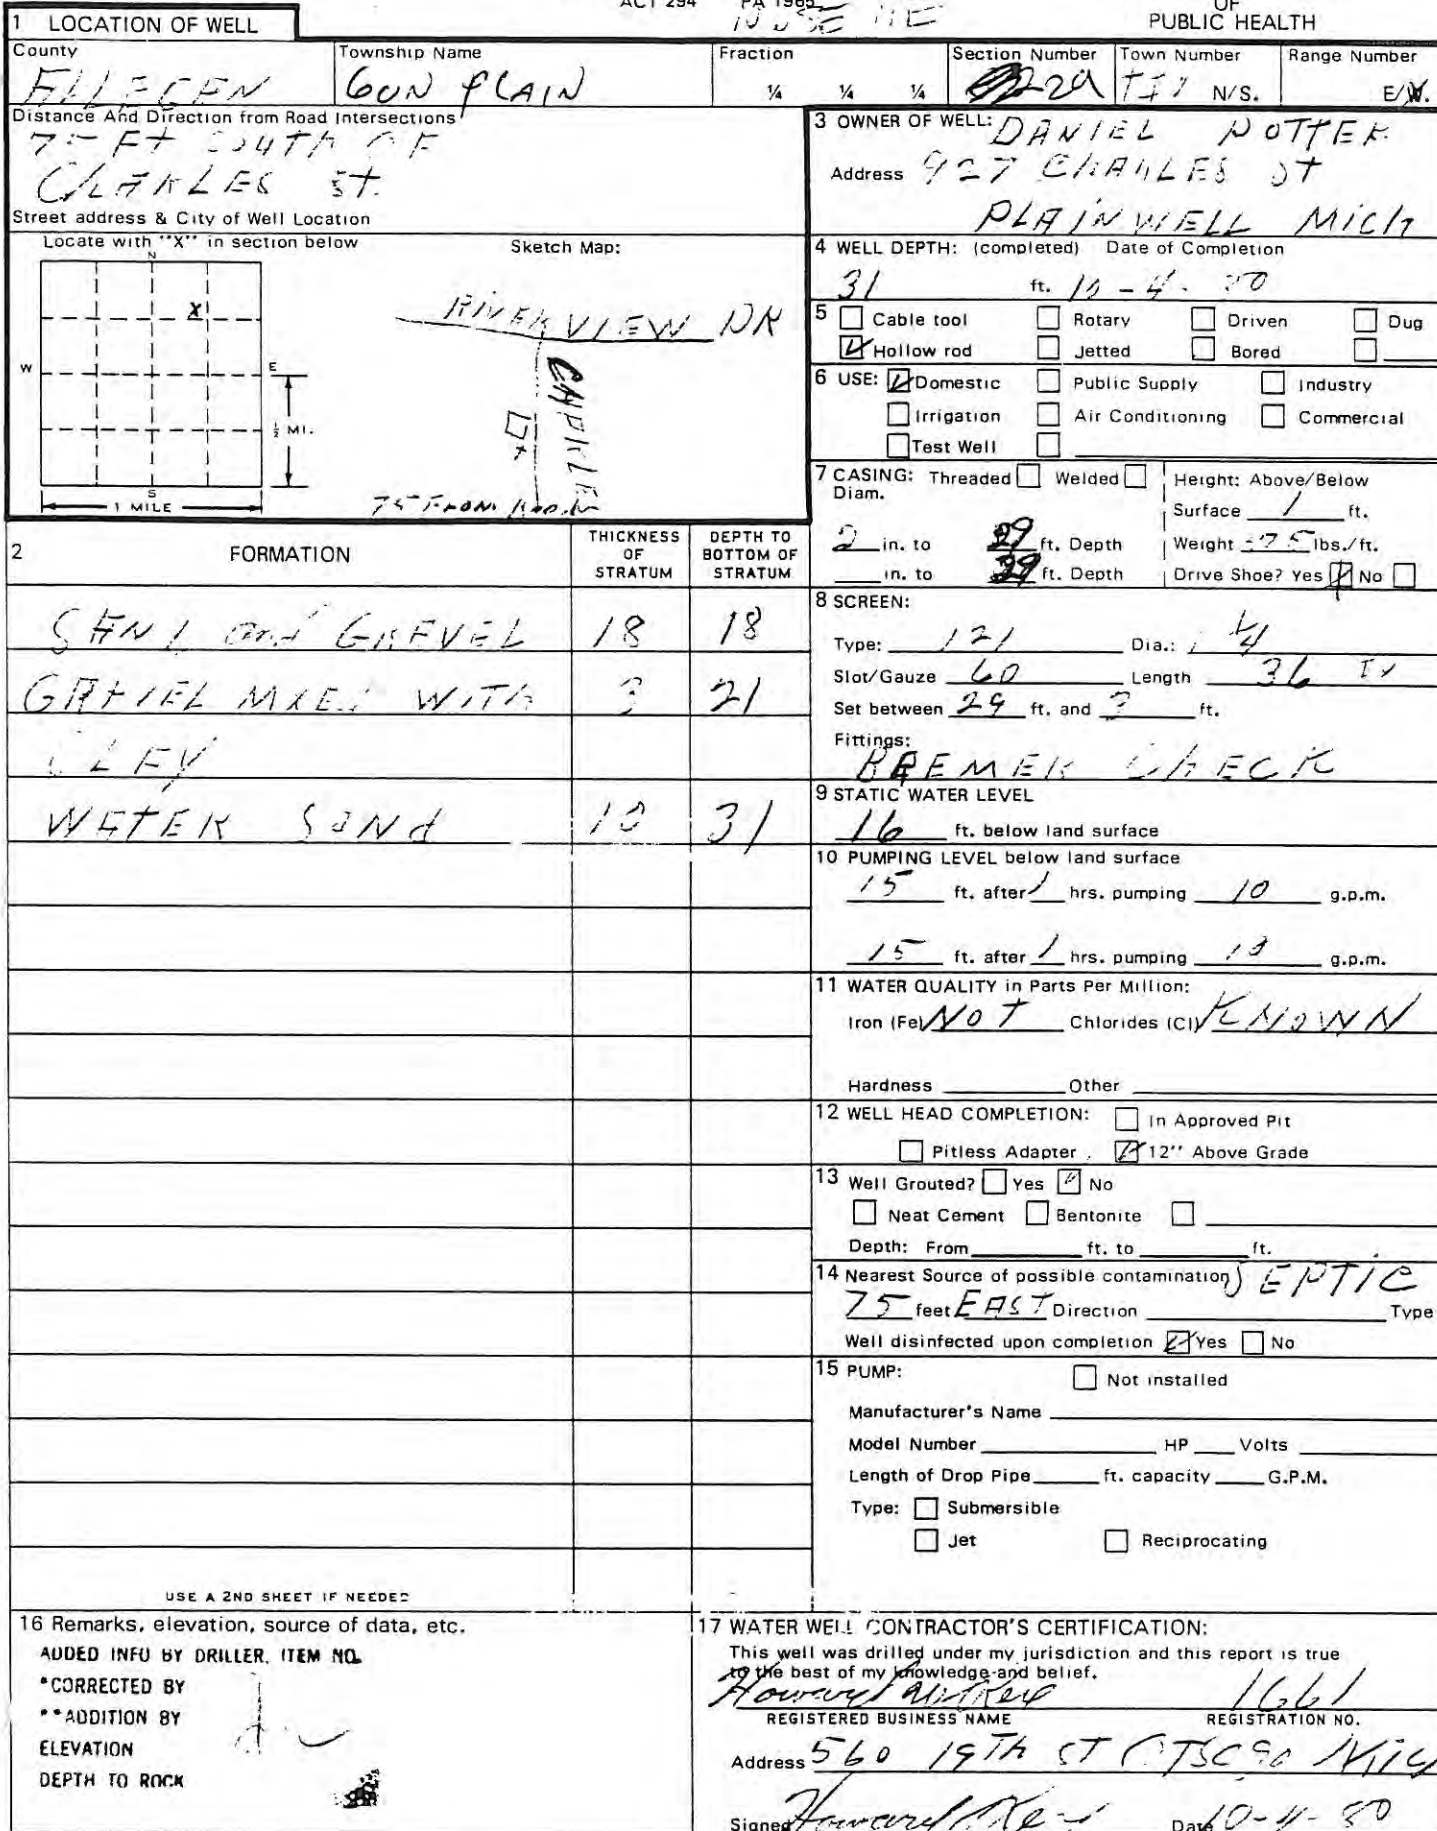 ACT 294 PA 1965
OF
PUBLIC HEALTH
1 LOCATION OF WELL
County
Township Name
Fraction
Section Number
Town Number
Range Number
GUN PLAIN
¼ ¼ ¼
N/S.
E/W.
Distance And Direction from Road Intersections
75 Ft SOUTH OF
CHARLES ST.
Street address & City of Well Location
Locate with "X" in section below
Sketch Map:
N
X
W
E
½ MI.
S
1 MILE
RIVERVIEW DR
CHARLES
75 FROM
3 OWNER OF WELL: DANIEL POTTER
Address 927 CHARLES ST
PLAINWELL MICH
4 WELL DEPTH: (completed) Date of Completion
31 ft. 10-4-80
5 Cable tool Rotary Driven Dug
Hollow rod Jetted Bored
6 USE: Domestic Public Supply Industry
Irrigation Air Conditioning Commercial
Test Well
7 CASING: Threaded Welded
Diam.
Height: Above/Below
Surface 1 ft.
2 in. to 29 ft. Depth
Weight lbs./ft.
in. to 29 ft. Depth
Drive Shoe? Yes No
2 FORMATION
THICKNESS OF STRATUM
DEPTH TO BOTTOM OF STRATUM
SAND and GRAVEL 18 18
GRAVEL MIXED WITH 3 21
CLAY
WATER SAND 10 31
8 SCREEN:
Type: 121 Dia.: 1 ¼
Slot/Gauze 60 Length 36
Set between 29 ft. and ft.
Fittings:
BREMER CHECK
9 STATIC WATER LEVEL
16 ft. below land surface
10 PUMPING LEVEL below land surface
15 ft. after 1 hrs. pumping 10 g.p.m.
15 ft. after 1 hrs. pumping 10 g.p.m.
11 WATER QUALITY in Parts Per Million:
Iron (Fe) NOT Chlorides (Cl) KNOWN
Hardness Other
12 WELL HEAD COMPLETION: In Approved Pit
Pitless Adapter 12" Above Grade
13 Well Grouted? Yes No
Neat Cement Bentonite
Depth: From ft. to ft.
14 Nearest Source of possible contamination SEPTIC
75 feet EAST Direction Type
Well disinfected upon completion Yes No
15 PUMP: Not installed
Manufacturer's Name
Model Number HP Volts
Length of Drop Pipe ft. capacity G.P.M.
Type: Submersible
Jet Reciprocating
USE A 2ND SHEET IF NEEDED
16 Remarks, elevation, source of data, etc.
ADDED INFO BY DRILLER, ITEM NO.
*CORRECTED BY
**ADDITION BY
ELEVATION
DEPTH TO ROCK
17 WATER WELL CONTRACTOR'S CERTIFICATION:
This well was drilled under my jurisdiction and this report is true
to the best of my knowledge and belief.
Howard 1661
REGISTERED BUSINESS NAME REGISTRATION NO.
Address 560 19Th ST OTSEGO Mich
Signed Howard Date 10-4-80